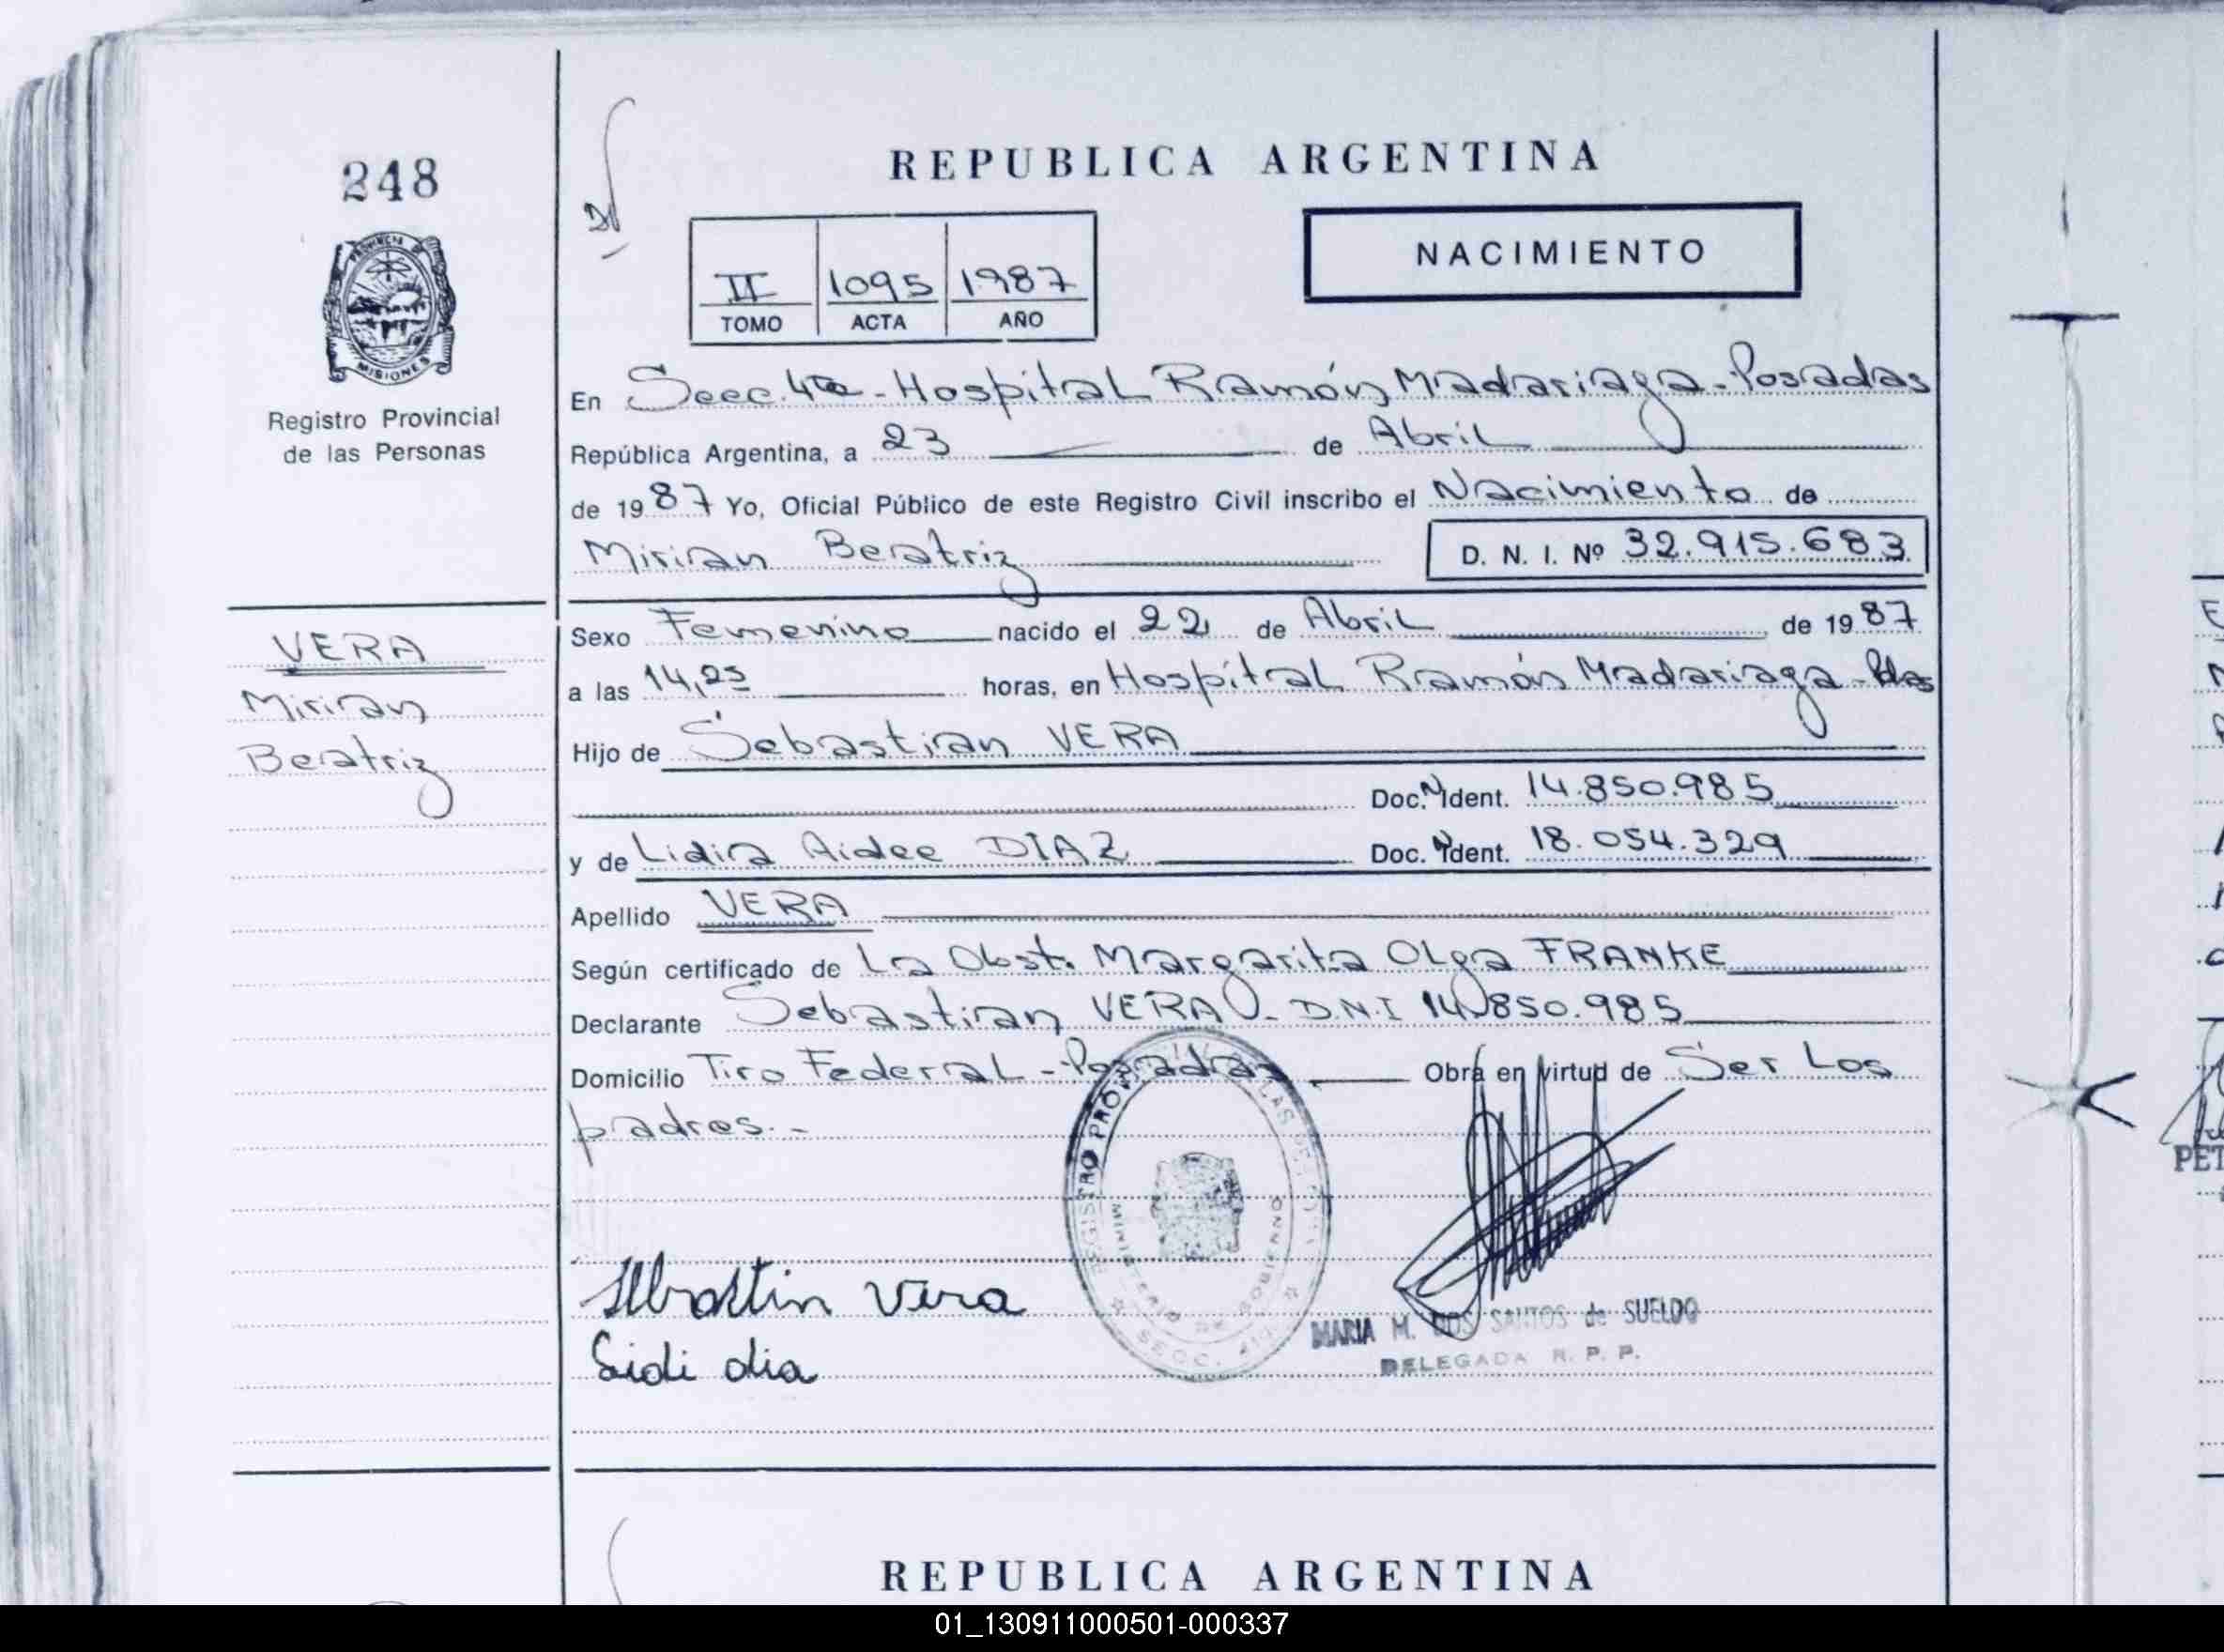 248
PROVINCIA DE
MISIONES
Registro Provincial
de las Personas
VERA
Mirian
Beatriz
REPUBLICA ARGENTINA
II 1095 1987
TOMO ACTA AÑO
NACIMIENTO
En Secc. 4ta - Hospital Ramón Madariaga - Posadas
República Argentina, a 23 de Abril
de 1987 Yo, Oficial Público de este Registro Civil inscribo el Nacimiento de
Mirian Beatriz D. N. I. Nº 32.915.683
Sexo Femenino nacido el 22 de Abril de 1987
a las 14,25 horas, en Hospital Ramón Madariaga - Pdas
Hijo de Sebastian VERA
Doc. N Ident. 14.850.985
y de Lidia Aidee DIAZ Doc. N Ident. 18.054.329
Apellido VERA
Según certificado de La Obst. Margarita Olga FRANKE
Declarante Sebastian VERA - D.N.I 14.850.985
Domicilio Tiro Federal - Posadas Obra en virtud de Ser Los
padres.-
REGISTRO PROV LAS PE
MINISTERIO DE GOBIERNO
SECC. 4
Sebastin Vera
Lidi dia
MARIA M. DOS SANTOS de SUELDO
DELEGADA R. P. P.
REPUBLICA ARGENTINA
PET
01_130911000501-000337